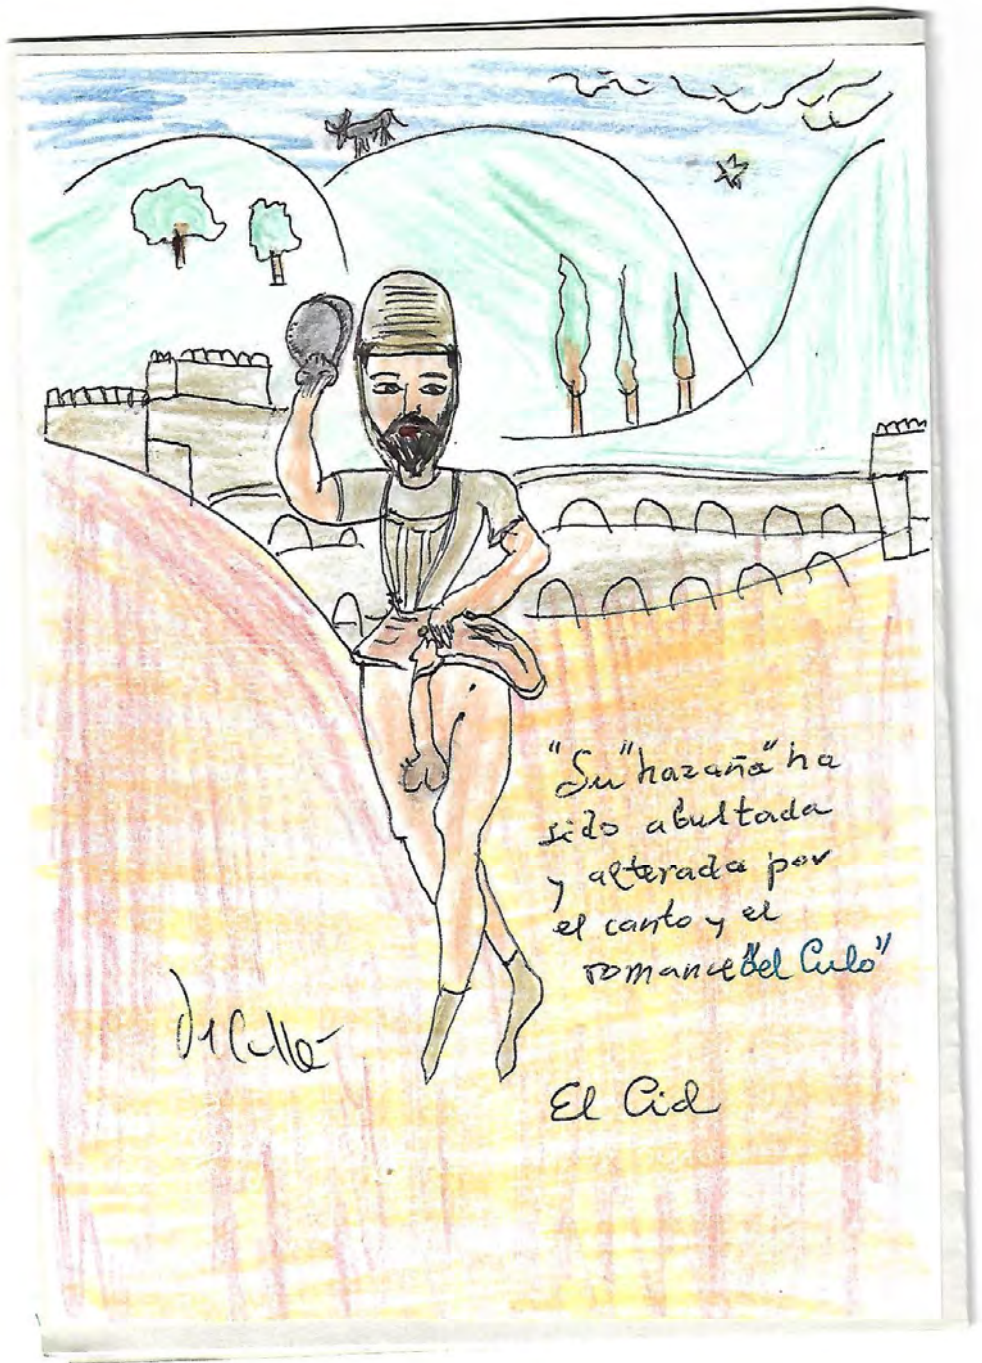 "Su "hazaña" ha
sido abultada
y alterada por
el canto y el
romance "del Culo"
El Cid